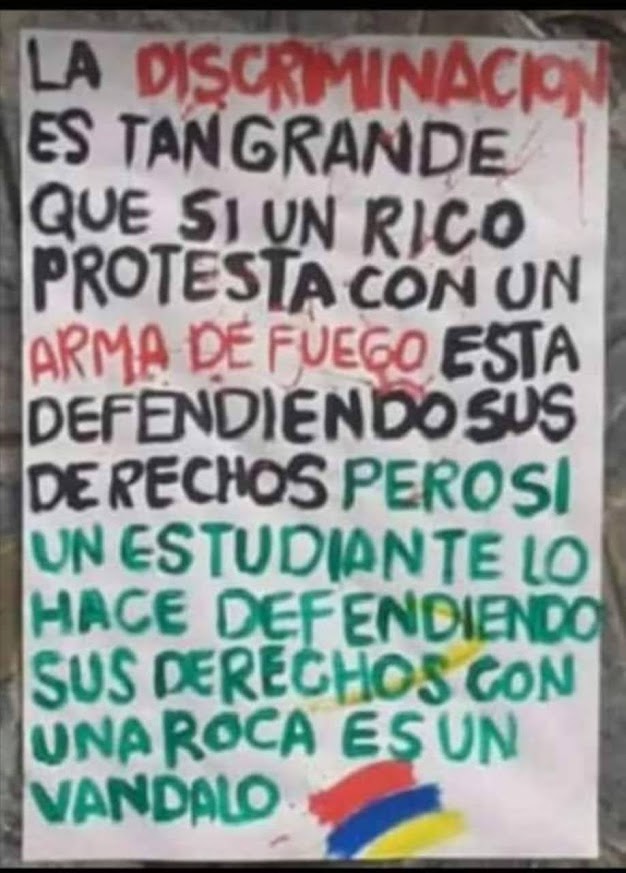 LA DISCRIMINACION
ES TAN GRANDE
QUE SI UN RICO
PROTESTA CON UN
ARMA DE FUEGO ESTA
DEFENDIENDO SUS
DERECHOS PERO SI
UN ESTUDIANTE LO
HACE DEFENDIENDO
SUS DERECHOS CON
UNA ROCA ES UN
VANDALO